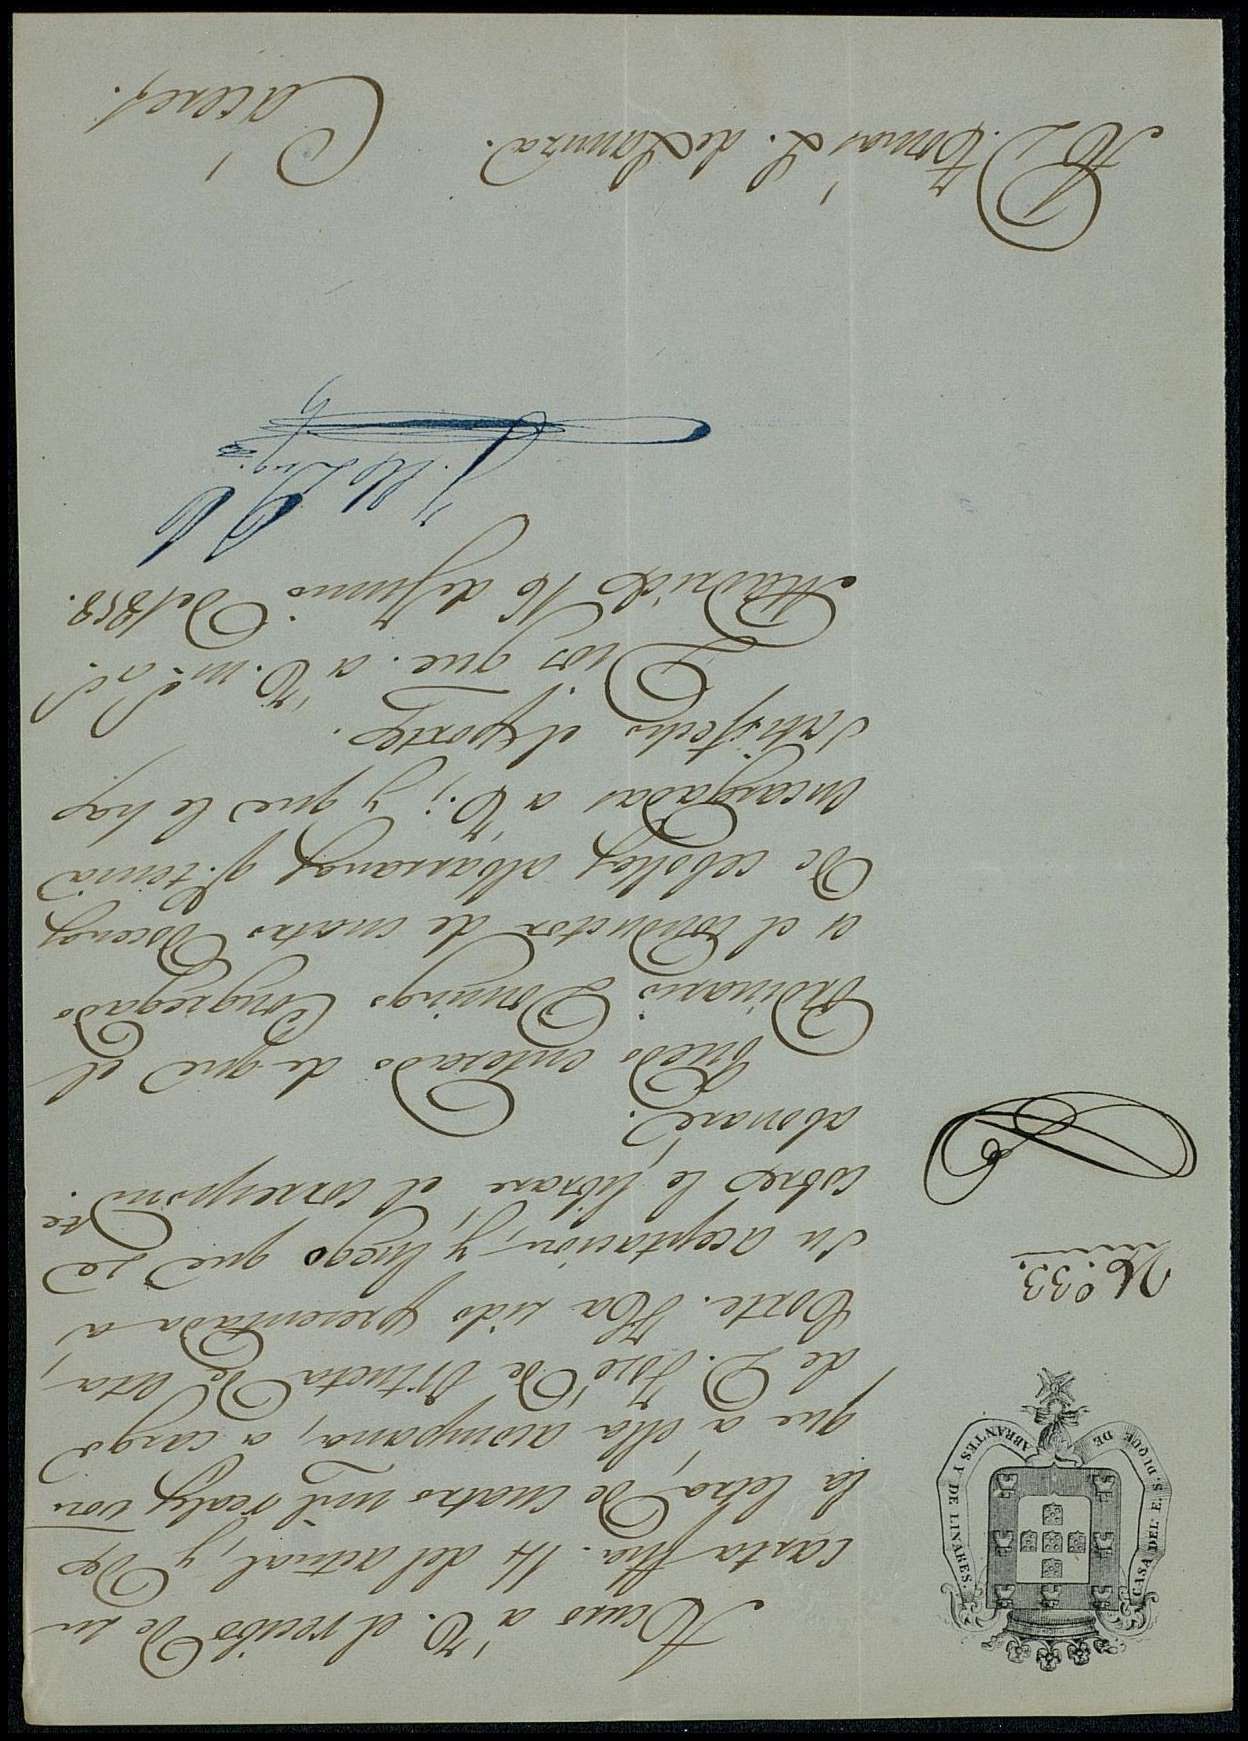 CASA DEL E. S. DUQUE DE ABRANTES Y DE LINARES.
N.º 33.
Acuso a V. el recibo de su
carta fha. 14 del actual, y de
la letra de cuatro mil reales von.
que a ella acompaña, a cargo
de D. José de Urtueta de esta
Corte. Ha sido presentada a
su aceptacion, y luego que se
cobre le librare el correspond.te
abonaré.
Quedo enterado de que el
Ordinario Domingo Congregado
es el conductor de cuatro docenas
de cebollas albarranas q.e tenia
encargadas a V.; y que le ha
satisfecho el porte.
Dios gue. a V. m.s a.s
Madrid 16 de Junio de 1858.
A D. Tomas L. de Lanuza.
Caceres.